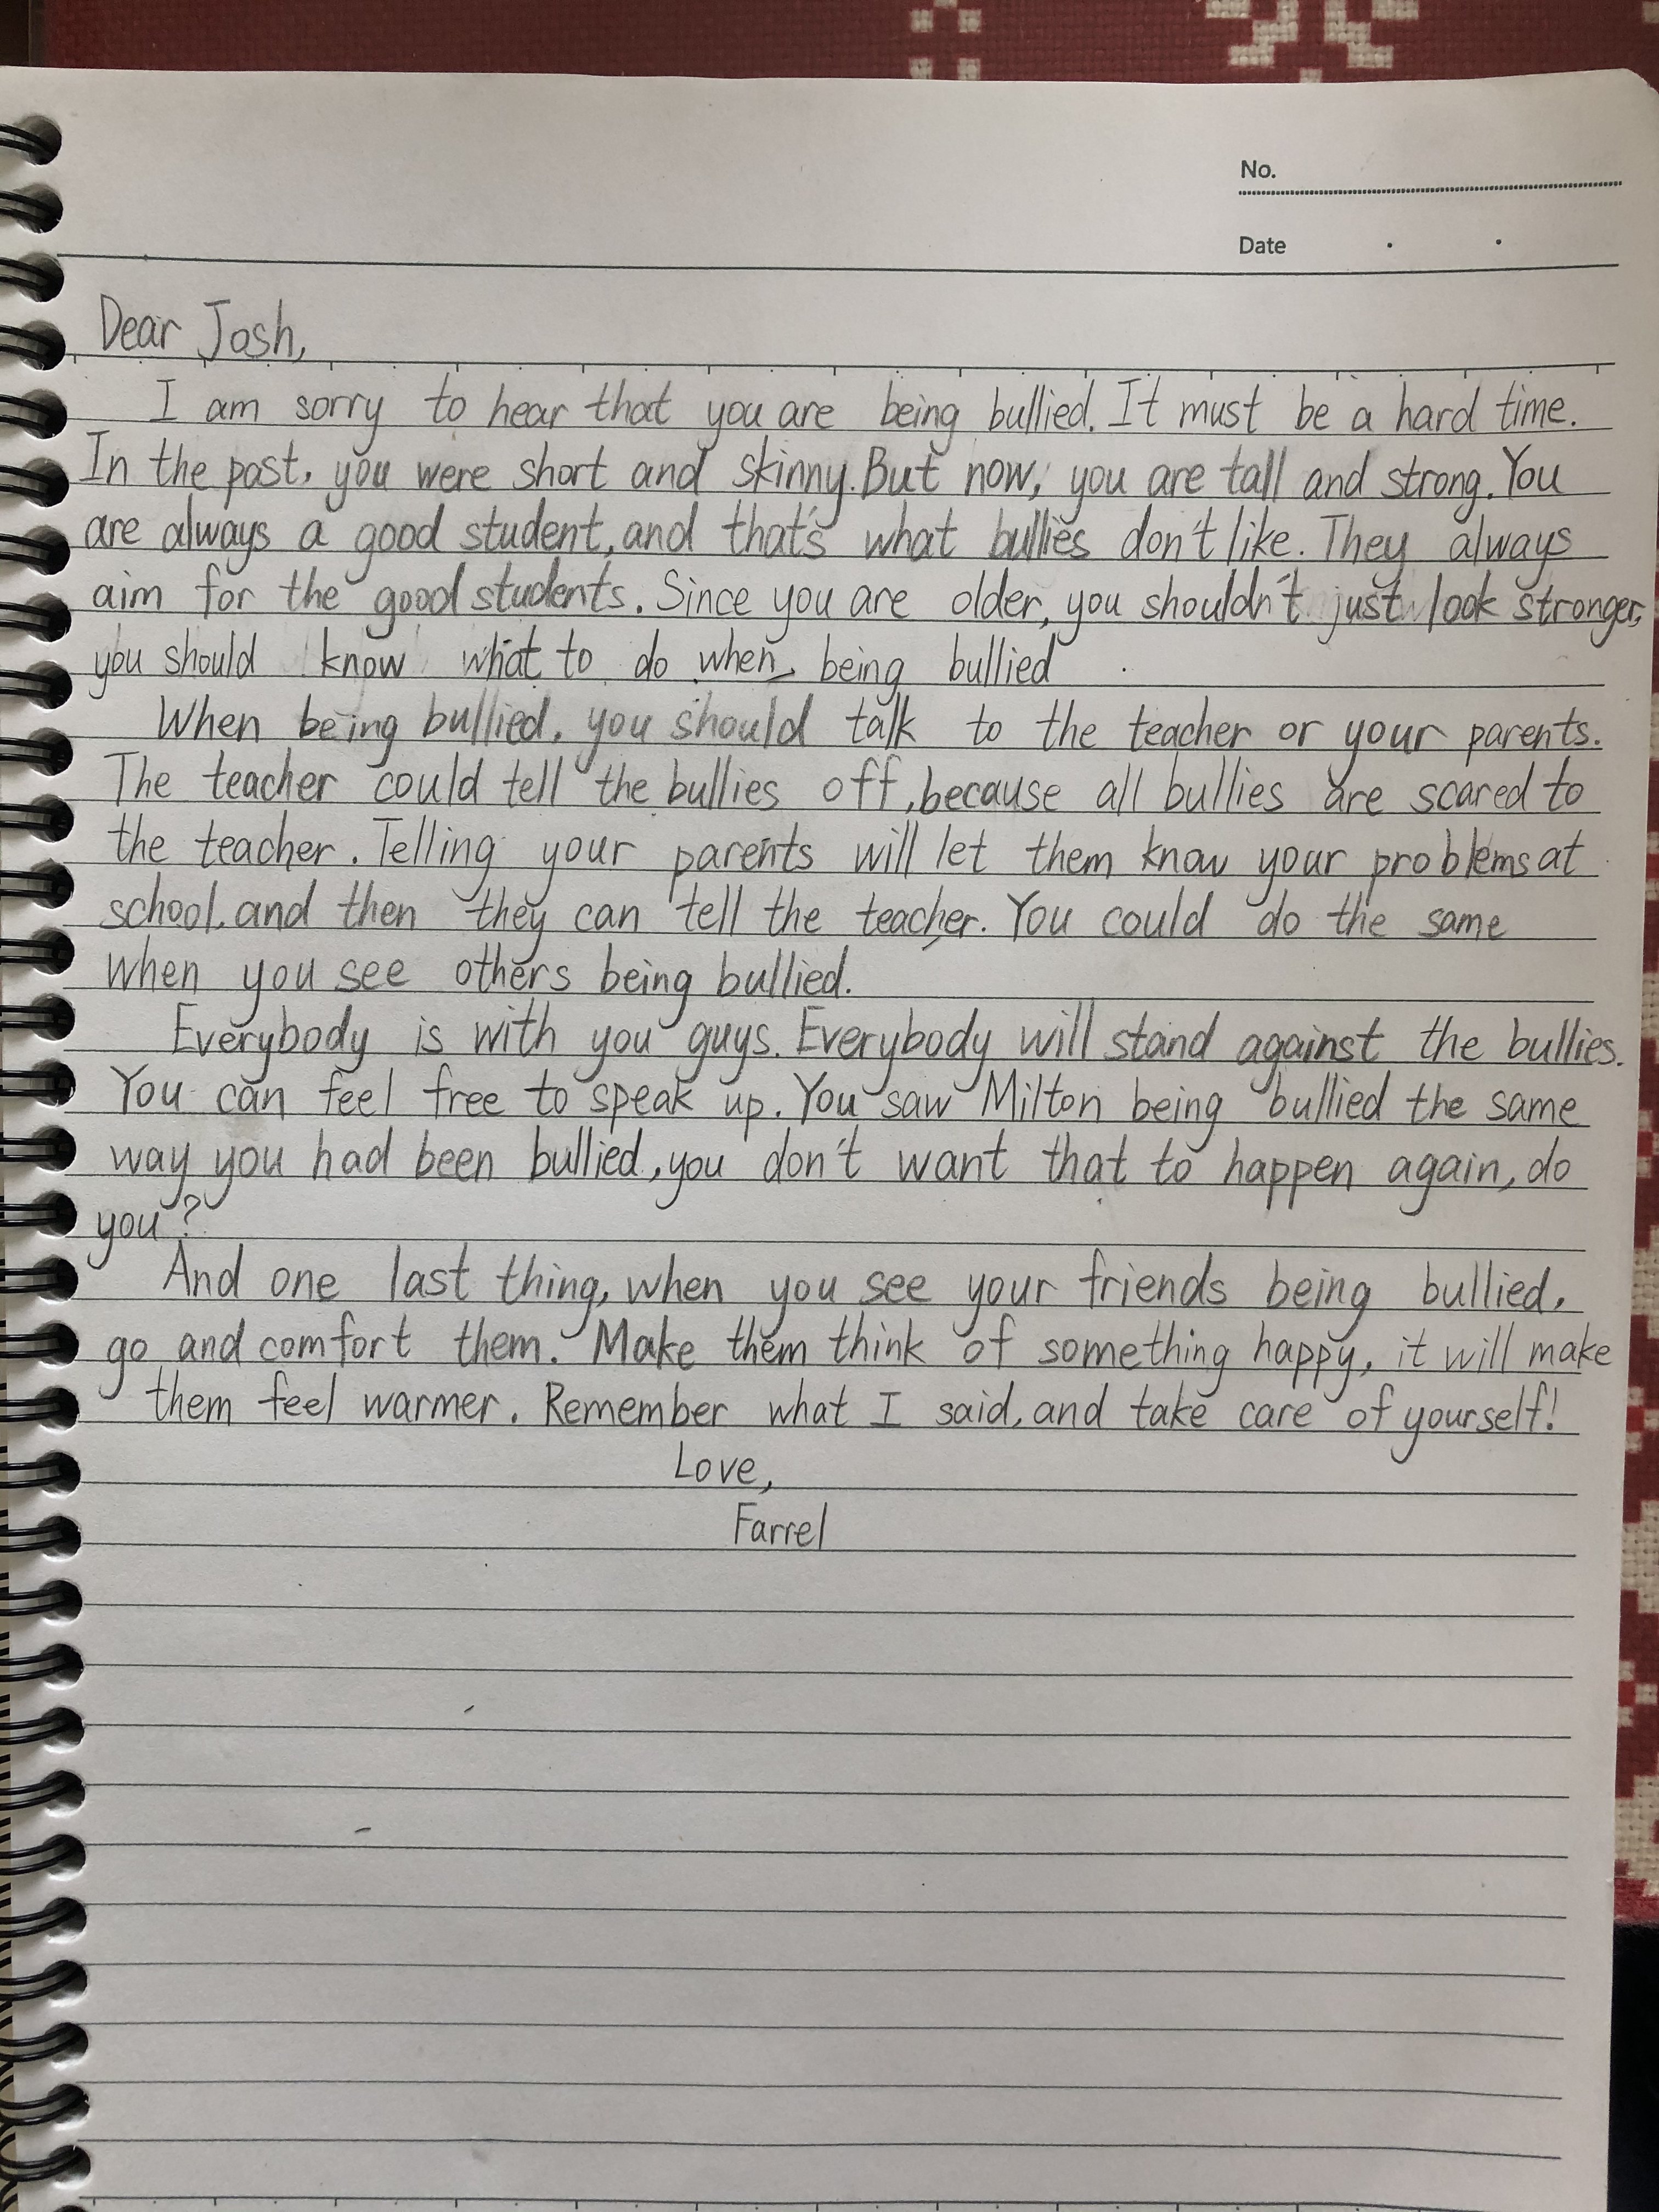 No.
Date
Dear Josh,
I am sorry to hear that you are being bullied. It must be a hard time.
In the past, you were short and skinny. But now, you are tall and strong. You
are always a good student, and that's what bullies don't like. They always
aim for the good students. Since you are older, you shouldn't just look stronger,
you should know what to do when being bullied.
When being bullied, you should talk to the teacher or your parents.
The teacher could tell the bullies off, because all bullies are scared to
the teacher. Telling your parents will let them know your problems at
school, and then they can tell the teacher. You could do the same
when you see others being bullied.
Everybody is with you guys. Everybody will stand against the bullies.
You can feel free to speak up. You saw Milton being bullied the same
way you had been bullied, you don't want that to happen again, do
you?
And one last thing, when you see your friends being bullied,
go and comfort them. Make them think of something happy, it will make
them feel warmer. Remember what I said, and take care of yourself!
Love,
Farrel